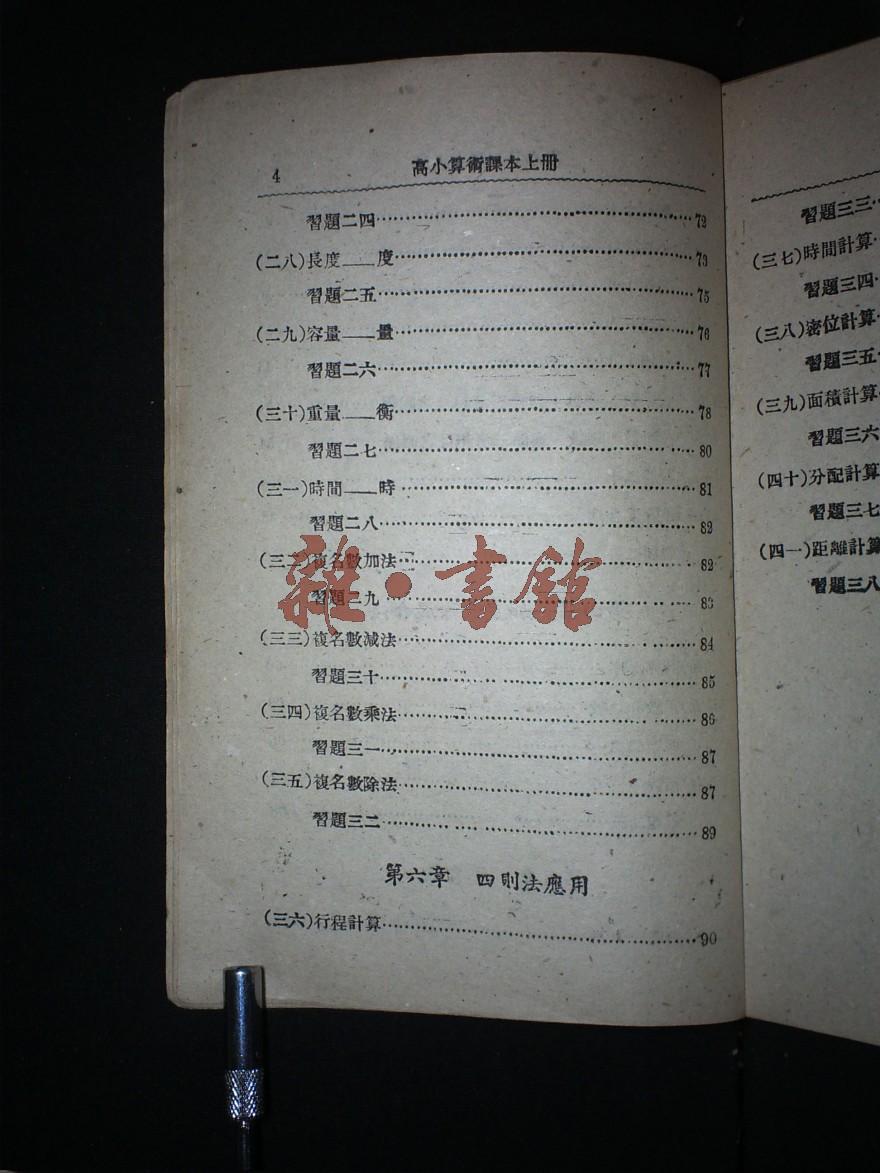 4 高小算術課本上冊
習題二四……72
(二八)長度——度……73
習題二五……75
(二九)容量——量……76
習題二六……77
(三十)重量——衡……78
習題二七……80
(三一)時間——時……81
習題二八……82
(三二)複名數加法……82
習題二九……83
(三三)複名數減法……84
習題三十……85
(三四)複名數乘法……86
習題三一……87
(三五)複名數除法……87
習題三二……89
第六章 四則法應用
(三六)行程計算……90
雜·書館
習題三三
(三七)時間計算
習題三四
(三八)密位計算
習題三五
(三九)面積計算
習題三六
(四十)分配計算
習題三七
(四一)距離計算
習題三八